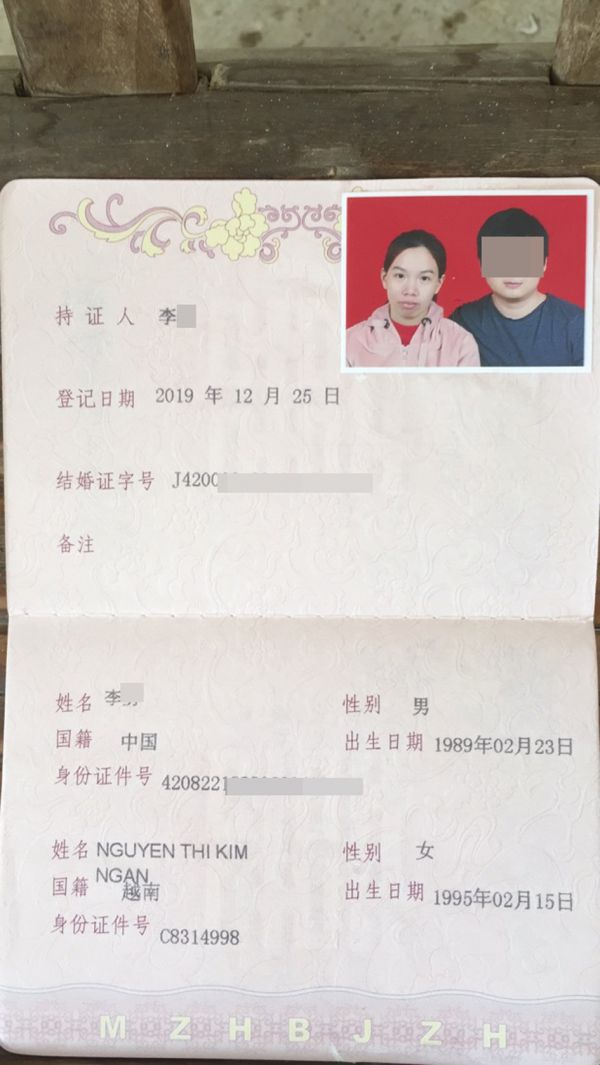 持证人 李
登记日期 2019 年 12 月 25 日
结婚证字号 J4200
备注
姓名 李 性别 男
国籍 中国 出生日期 1989年02月23日
身份证件号 4208221
姓名 NGUYEN THI KIM 性别 女
NGAN
国籍 越南 出生日期 1995年02月15日
身份证件号 C8314998
M Z H B J Z H